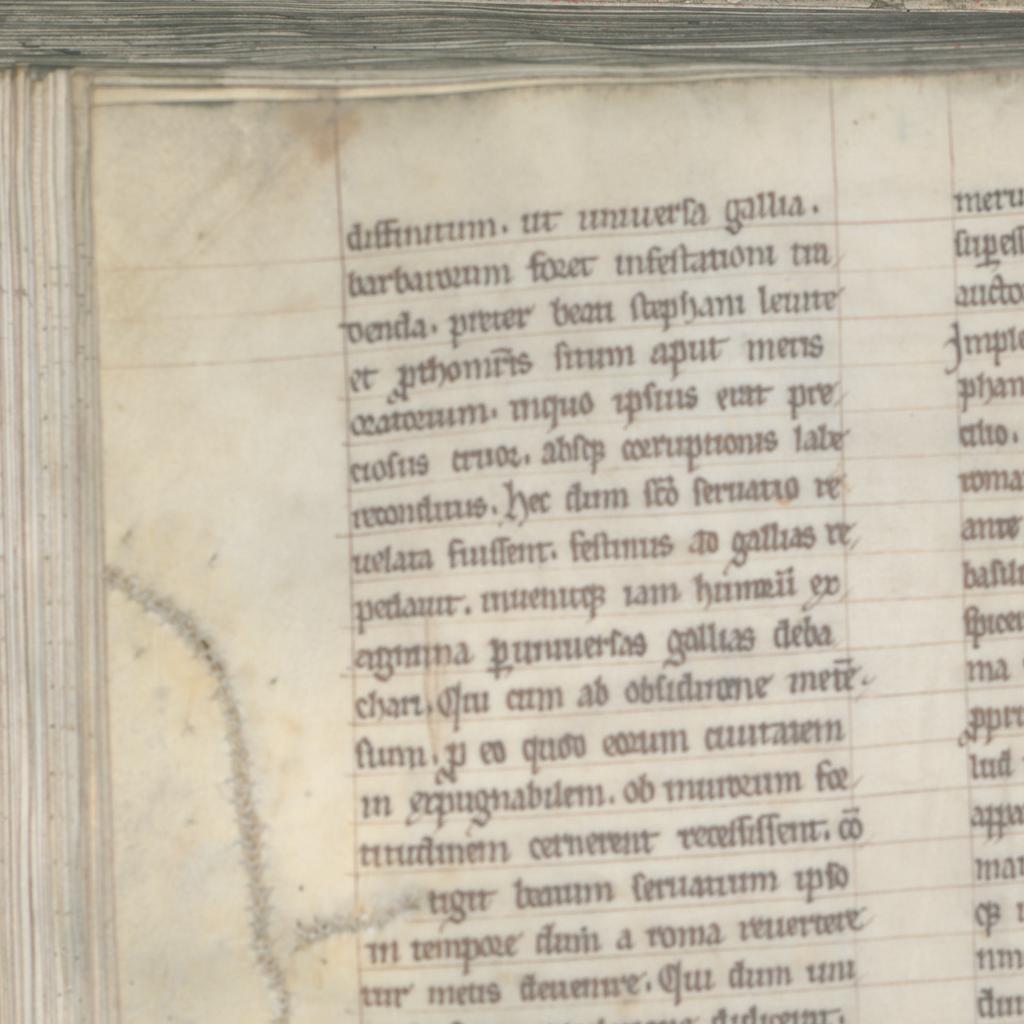 diffinitum. ut uniuersa gallia.
barbarorum foret infestationi tra
denda. preter beati stephani leuite
et prothomr̄is situm aput metis
oratorium. inquo ipsius erat pre
ciosus cruor. absqꝫ corruptionis labe
reconditus. Hec dum sc̄o seruatio re
uelata fuissent. festinus ad gallias re
pedauit. inuenitqꝫ iam hunoꝝ ex
agmina ꝑuniuersas gallias deba
chari. Qui cum ab obsidione metē.
sium. ꝓ eo quod eorum ciuitatem
in expugnabilem. ob murorum for
titudinem cernerent recessissent. cō
tigit beatum seruatium ipso
in tempore dum a roma reuertere
tur metis deuenire. Qui dum uni
didicerat.
meru
suꝑest
aucto
Imple
phan
cilio.
roma
ante
basili
spicer
ma
ꝓpriu
lud
appa
mar
qꝫ
nim
dui